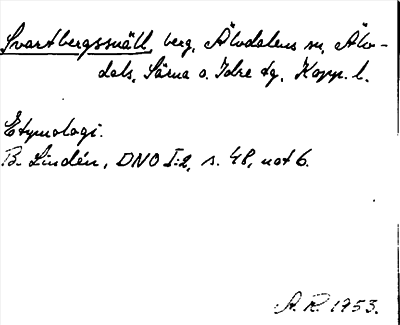 Svartbergssnäll, berg, Älvdalens sn, Älv-
dals, Särna o. Idre tg, Kopp. l.
Etymologi.
B. Lindén, DNO I:2, s. 48, not 6.
A. R. 1953.